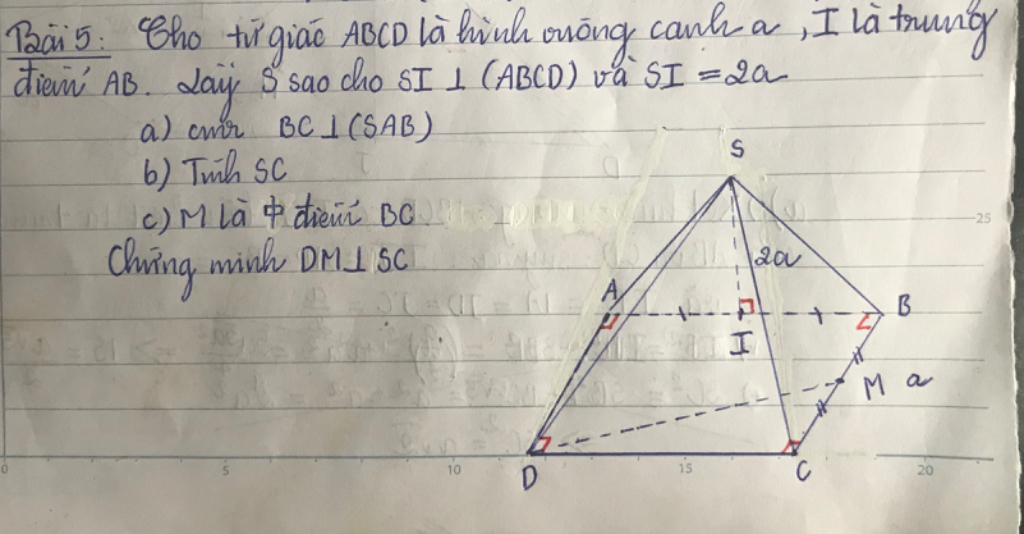 Bài 5: Cho tứ giác ABCD là hình vuông cạnh a, I là trung
điểm AB. Lấy S sao cho SI ⊥ (ABCD) và SI = 2a
a) cmr BC ⊥ (SAB)
b) Tính SC
c) M là 中 điểm BC
Chứng minh DM ⊥ SC
S
25
2a
A
B
I
M a
0 5 10 15 20
D
C